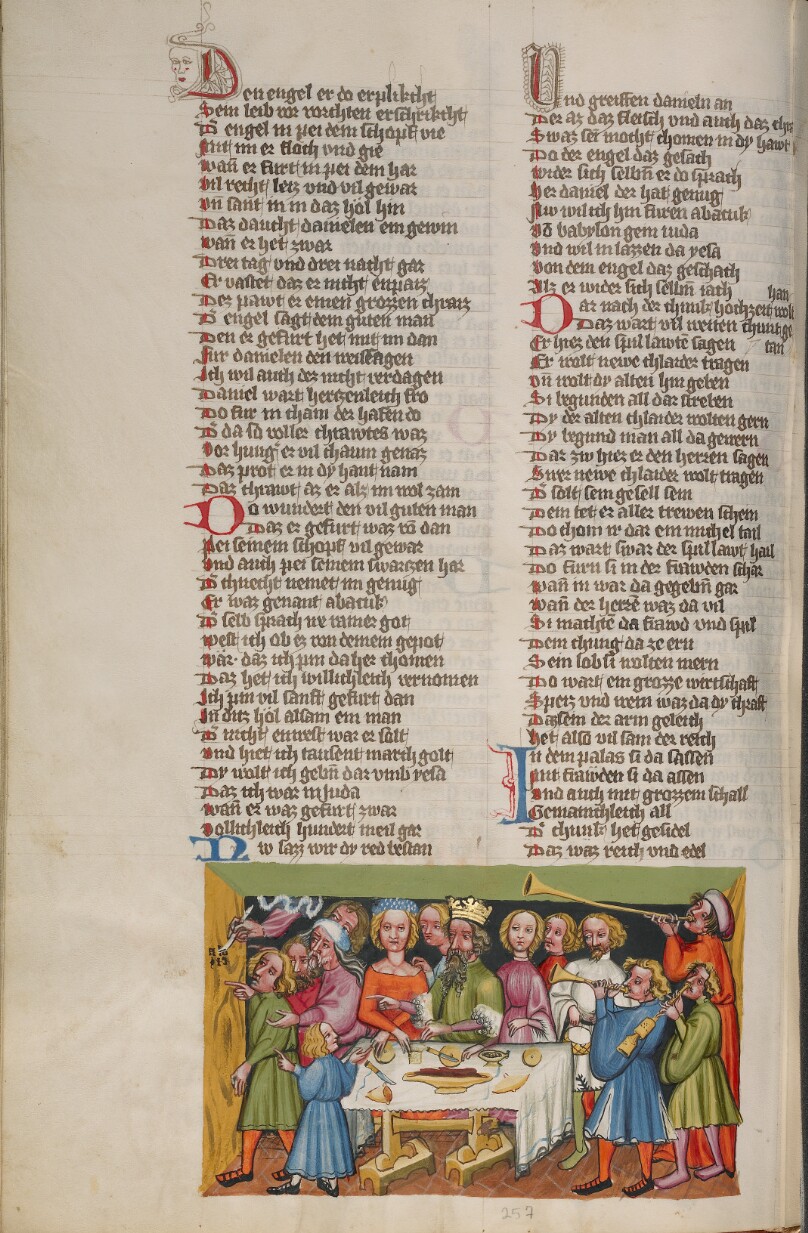 Den engel er do erplikcht
Sein leib vor vorchten erschrikcht
Der engel in pei dem schopf vie
Mit im er floch vnd gie
Wan er furt in pei dem har
Vil recht letz vnd vil gewar
Vn sant in in daz hol hin
Daz daucht danielen ein gewin
Wan er het zwar
Drei tag vnd drei nacht gar
Er vastet daz er nicht enpaiz
Des pawt er einen grozzen chraiz
Der engel sagt dem guten man
Den er gefurt het mit im dan
Fur danielen den weissagen
Ich wil auch des nicht verdagen
Daniel wart hertzenleich fro
Do fur in cham der hafen do
Der da so voller chrawtes waz
Vor hung er vil chaum genaz
Daz prot er in dy hant nam
Daz chrawt az er als im wol zam
Do wundert den vil guten man
Daz er gefurt waz von dan
Pei seinem schopf vil gewar
Vnd auch pei seinem swartzen har
Der chnecht nemet im genug
Er waz genant abacuk
Der selb sprach we rainer got
West ich ob ez von deinem gepot
Wär daz ich pin da her chomen
Daz het ich willichleich vernomen
Ich pin vil sanft gefurt dan
In ditz hol alsam ein man
Der nicht enwest war er solt
Vnd hiet ich tausent march golt
Dy wolt ich gebn dar vmb yesa
Daz ich war in Juda
Wan er waz gefurt zwar
Vollichleich hundert meil gar
Nw lazz wir dy red bestan
Vnd greiffen danieln an
Der az daz fleisch vnd auch daz
Swaz sei mocht chomen in dy hawt
Do der engel daz gesach
Wider sich selbn er do sprach
Her daniel der hat genug
Nw wil ich hin furen abacuk
Von babylon gem iuda
Vnd wil in lazzen da yesa
Von dem engel daz geschach
Als er wider sich selbm iach
Dar nach der chunk hochzeit wolt han
Daz wart vil weiten chunt getan
Er hiez den spil lawte sagen
Er wolt newe chlaider tragen
Vn wolt dy alten hin geben
Si begunden all dar streben
Dy der alten chlaider wolten gern
Dy begund man all da gewern
Dar zw hiez er den herren sagen
Swer newe chlaider wolt tragen
Der solt sein gesell sein
Dem tet er aller trewen schein
Do chom ir dar ein michel tail
Daz wart swar der spil lawt hail
Do furn si in der frawden schar
Wan in war da gegebn gar
Wan der herre waz da vil
Si machte da frawd vnd spil
Dem chunig da ze ern
Sein lob si wolten mern
Do wart ein grozze wirtschaft
Speis vnd wein waz da dy chraft
Daz sein der arm geleich
Het also vil sam der reich
In dem palas si da sassen
Mit frawden si da assen
Vnd auch mit grozzem schall
Gemainchleich all
Der chunk het gesidel
Daz waz reich vnd edel
257